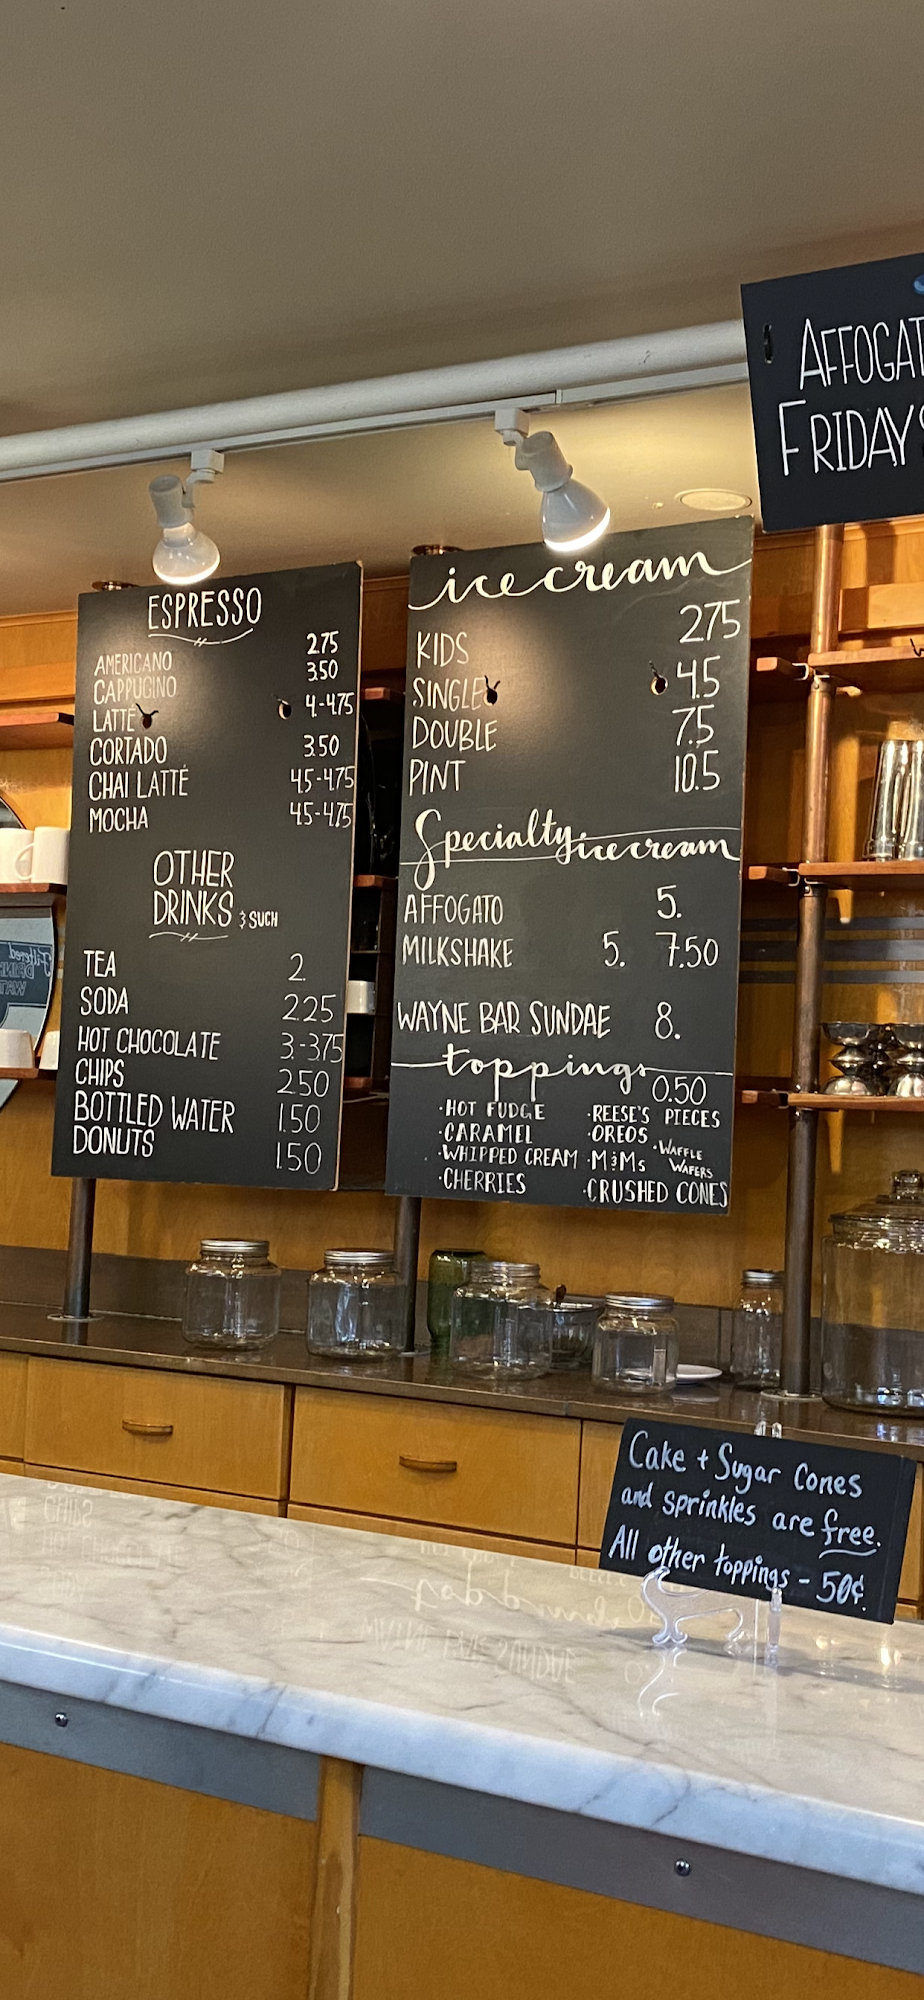 AFFOGAT
FRIDAYS
ESPRESSO
AMERICANO 2.75
CAPPUCINO 3.50
LATTÉ 4.-4.75
CORTADO 3.50
CHAI LATTÉ 4.5-4.75
MOCHA 4.5-4.75
OTHER
DRINKS & SUCH
TEA 2.
SODA 2.25
HOT CHOCOLATE 3.-3.75
CHIPS 2.50
BOTTLED WATER 1.50
DONUTS 1.50
ice cream
KIDS 2.75
SINGLE 4.5
DOUBLE 7.5
PINT 10.5
Specialty ice cream
AFFOGATO 5.
MILKSHAKE 5. 7.50
WAYNE BAR SUNDAE 8.
toppings 0.50
·HOT FUDGE ·REESE'S PIECES
·CARAMEL ·OREOS
·WHIPPED CREAM ·M&Ms ·WAFFLE WAFERS
·CHERRIES ·CRUSHED CONES
Filtered
DRINKING
WATER
Cake + Sugar Cones
and sprinkles are free.
All other toppings - 50¢.